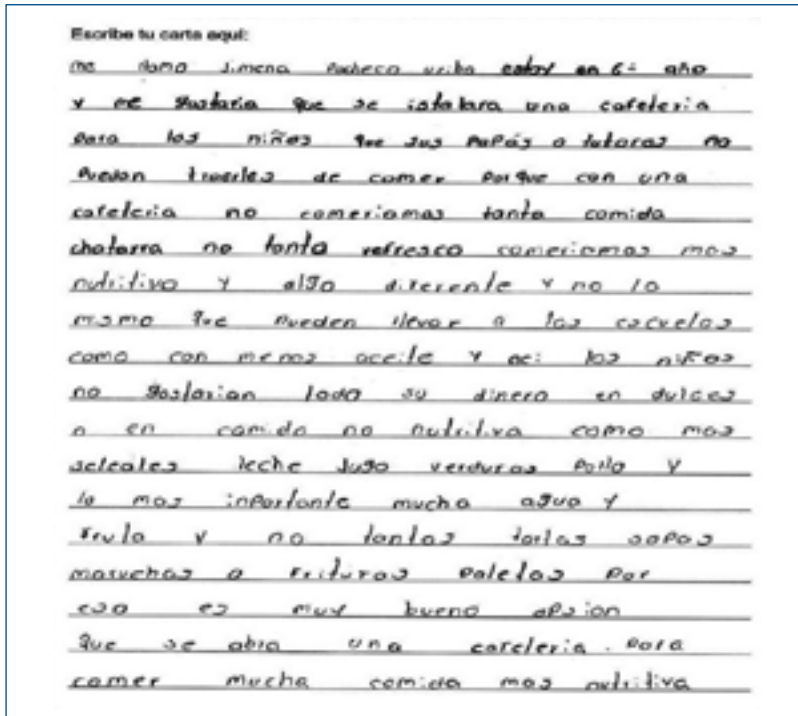 Escribe tu carta aquí:
me llamo Jimena Pacheco uribe estoy en 6º año
y me gustaria que se istalara una cafeteria
para los niños que sus papás o tutoras no
puedan traerles de comer porque con una
cafeteria no comeriamos tanta comida
chatarra no tanto refresco comeriamos mas
nutritivo y algo diferente y no lo
mismo que pueden llevar a las escuelas
como con menos aceite y asi los niños
no gastarian todo su dinero en dulces
o en comida no nutritiva como mas
seleales leche jugo verduras pollo y
lo mas inportante mucha agua y
fruta y no tantas tortas sopas
maruchas o frituras paletas por
eso es muy buena opsion
que se abra una cafeteria. para
comer mucha comida mas nutritiva